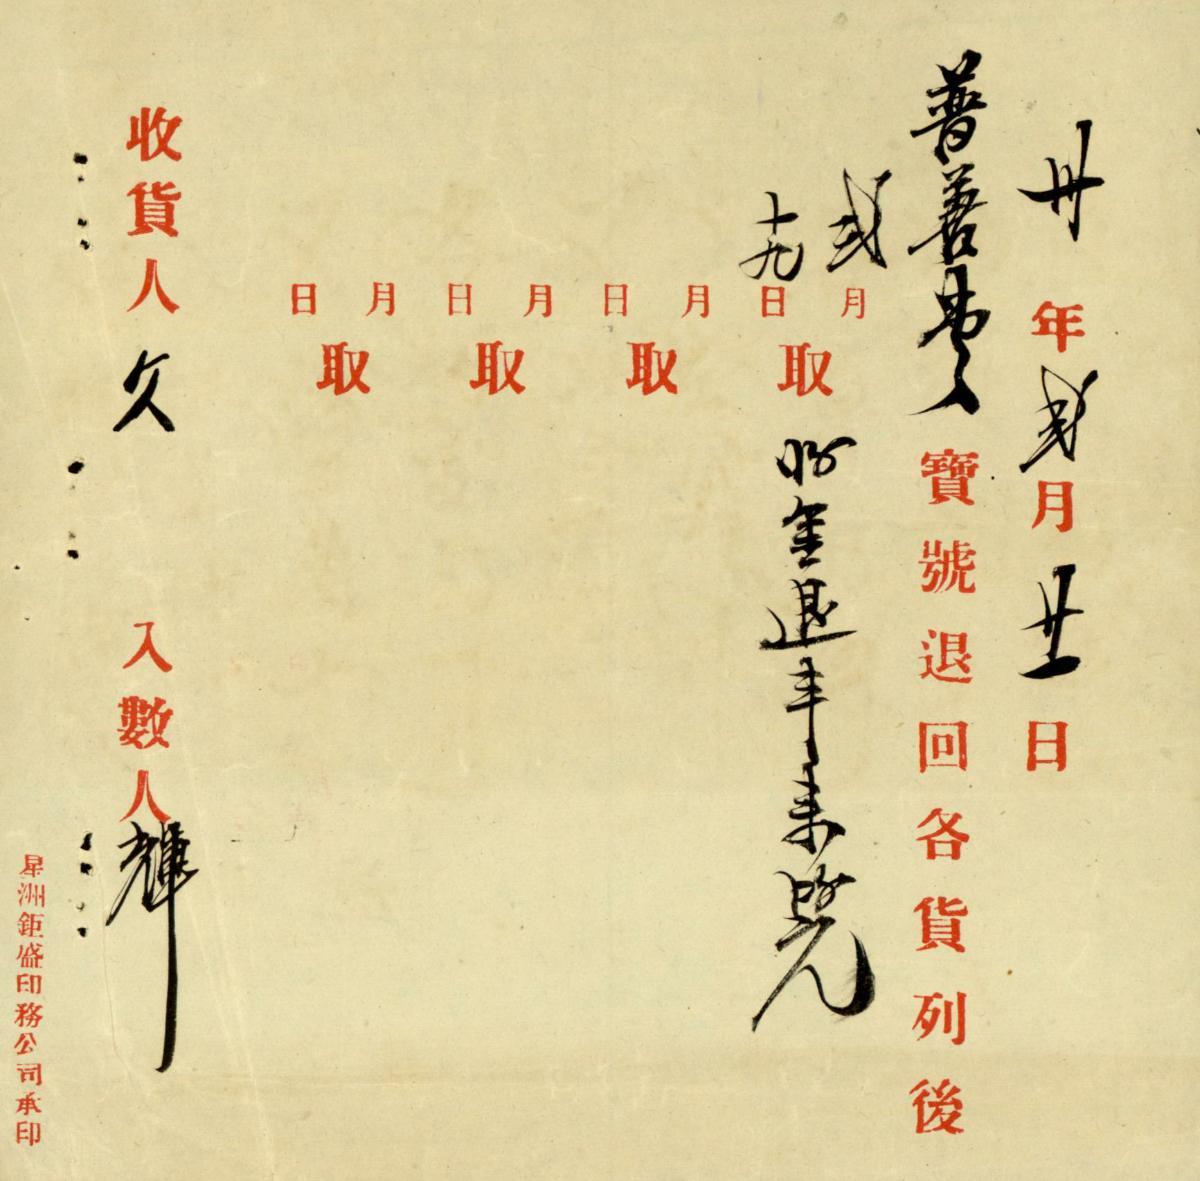 卅年弍月廿一日
普善堂寶號退回各貨列後
弍月十九日取
月日取
月日取
月日取
收貨人久
入數人輝
星洲鉅盛印務公司承印